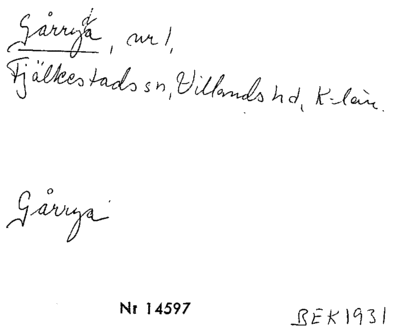 Gårrya, nr 1,
Fjälkestads sn, Villands hd, K-län.
Gårrya
Nr 14597
BEK 1931